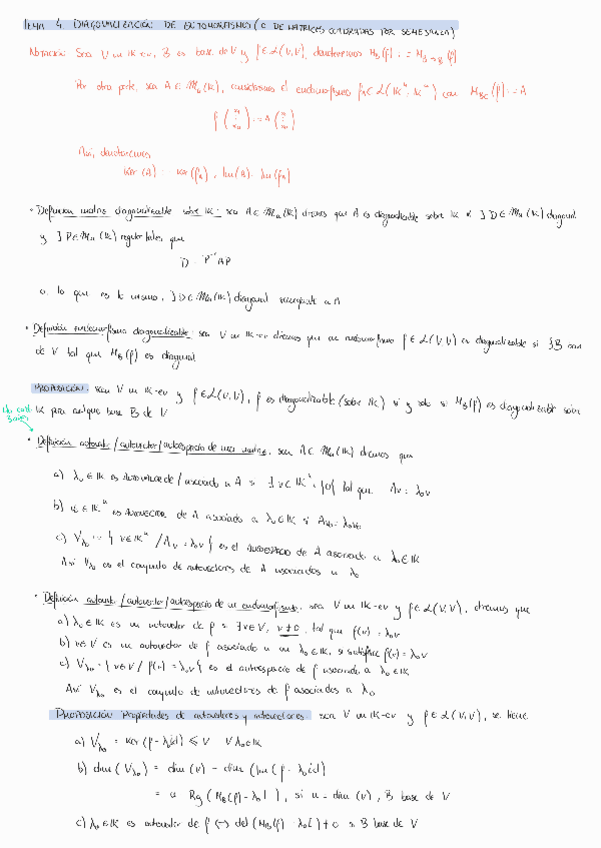 TEMA 4 DIAGONALIZACIÓN DE ENDOMORFISMOS (O DE MATRICES CUADRADAS POR SEMEJANZA)
NOTACIÓN: Sea V un IK-ev, B es base de V y f ∈ L(V,V), denotaremos M_B(f) := M_{B→B}(f)
Por otra parte, sea A ∈ M_n(IK), consideramos el endomorfismo f_A ∈ L(IK^n, IK^n) con M_{Bc}(f) := A
f(x_1 ⋮ x_n) := A(x_1 ⋮ x_n)
Así, denotaremos
Ker(A) := Ker(f_A), Im(A) := Im(f_A)
• Definición matriz diagonalizable sobre IK: sea A ∈ M_n(IK) diremos que A es diagonalizable sobre IK si ∃ D ∈ M_n(IK) diagonal
y ∃ P ∈ M_n(IK) regular tales que
D = P^{-1}AP
o lo que es lo mismo, ∃ D ∈ M_n(IK) diagonal semejante a A
• Definición endomorfismo diagonalizable: sea V un IK-ev diremos que un endomorfismo f ∈ L(V,V) es diagonalizable si ∃ B base
de V tal que M_B(f) es diagonal
PROPOSICIÓN: sea V un IK-ev y f ∈ L(V,V), f es diagonalizable (sobre IK) si y solo si M_B(f) es diagonalizable sobre
IK para cualquier base B de V
• Definición autovalor/autovector/autoespacio de una matriz: sea A ∈ M_n(IK) diremos que
a) λ_0 ∈ IK es autovalor de/asociado a A si ∃ v ∈ IK^n, {0} tal que Av = λ_0v
b) v_0 ∈ IK^n es autovector de A asociado a λ_0 ∈ IK si Av_0 = λ_0v_0
c) V_{λ0} := { v ∈ IK^n / Av = λ_0v } es el autoespacio de A asociado a λ_0 ∈ IK
Así V_{λ0} es el conjunto de autovectores de A asociados a λ_0
• Definición autovalor/autovector/autoespacio de un endomorfismo: sea V un IK-ev y f ∈ L(V,V), diremos que
a) λ_0 ∈ IK es un autovalor de f si ∃ v ∈ V, v ≠ 0, tal que f(v) = λ_0v
b) v ∈ V es un autovector de f asociado a un λ_0 ∈ IK, si satisface f(v) = λ_0v
c) V_{λ0} = { v ∈ V / f(v) = λ_0v } es el autoespacio de f asociado a λ_0 ∈ IK
Así V_{λ0} es el conjunto de autovectores de f asociados a λ_0
PROPOSICIÓN Propiedades de autovalores y autovectores: sea V un IK-ev y f ∈ L(V,V), se tiene
a) V_{λ0} = Ker(f - λ_0id) ≤ V ∀ λ_0 ∈ IK
b) dim(V_{λ0}) = dim(V) - dim(Im(f - λ_0id))
= n - Rg(M_B(f) - λ_0I), si n = dim(V), B base de V
c) λ_0 ∈ IK es autovalor de f ↔ det(M_B(f) - λ_0I) = 0 si B base de V